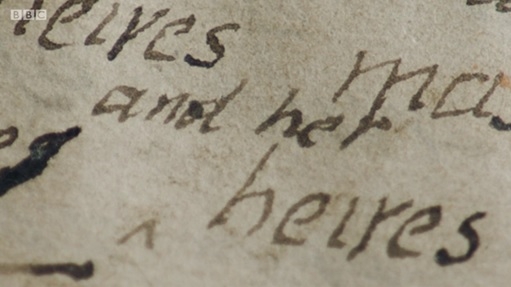 BBC
heires
and her
ma
heires